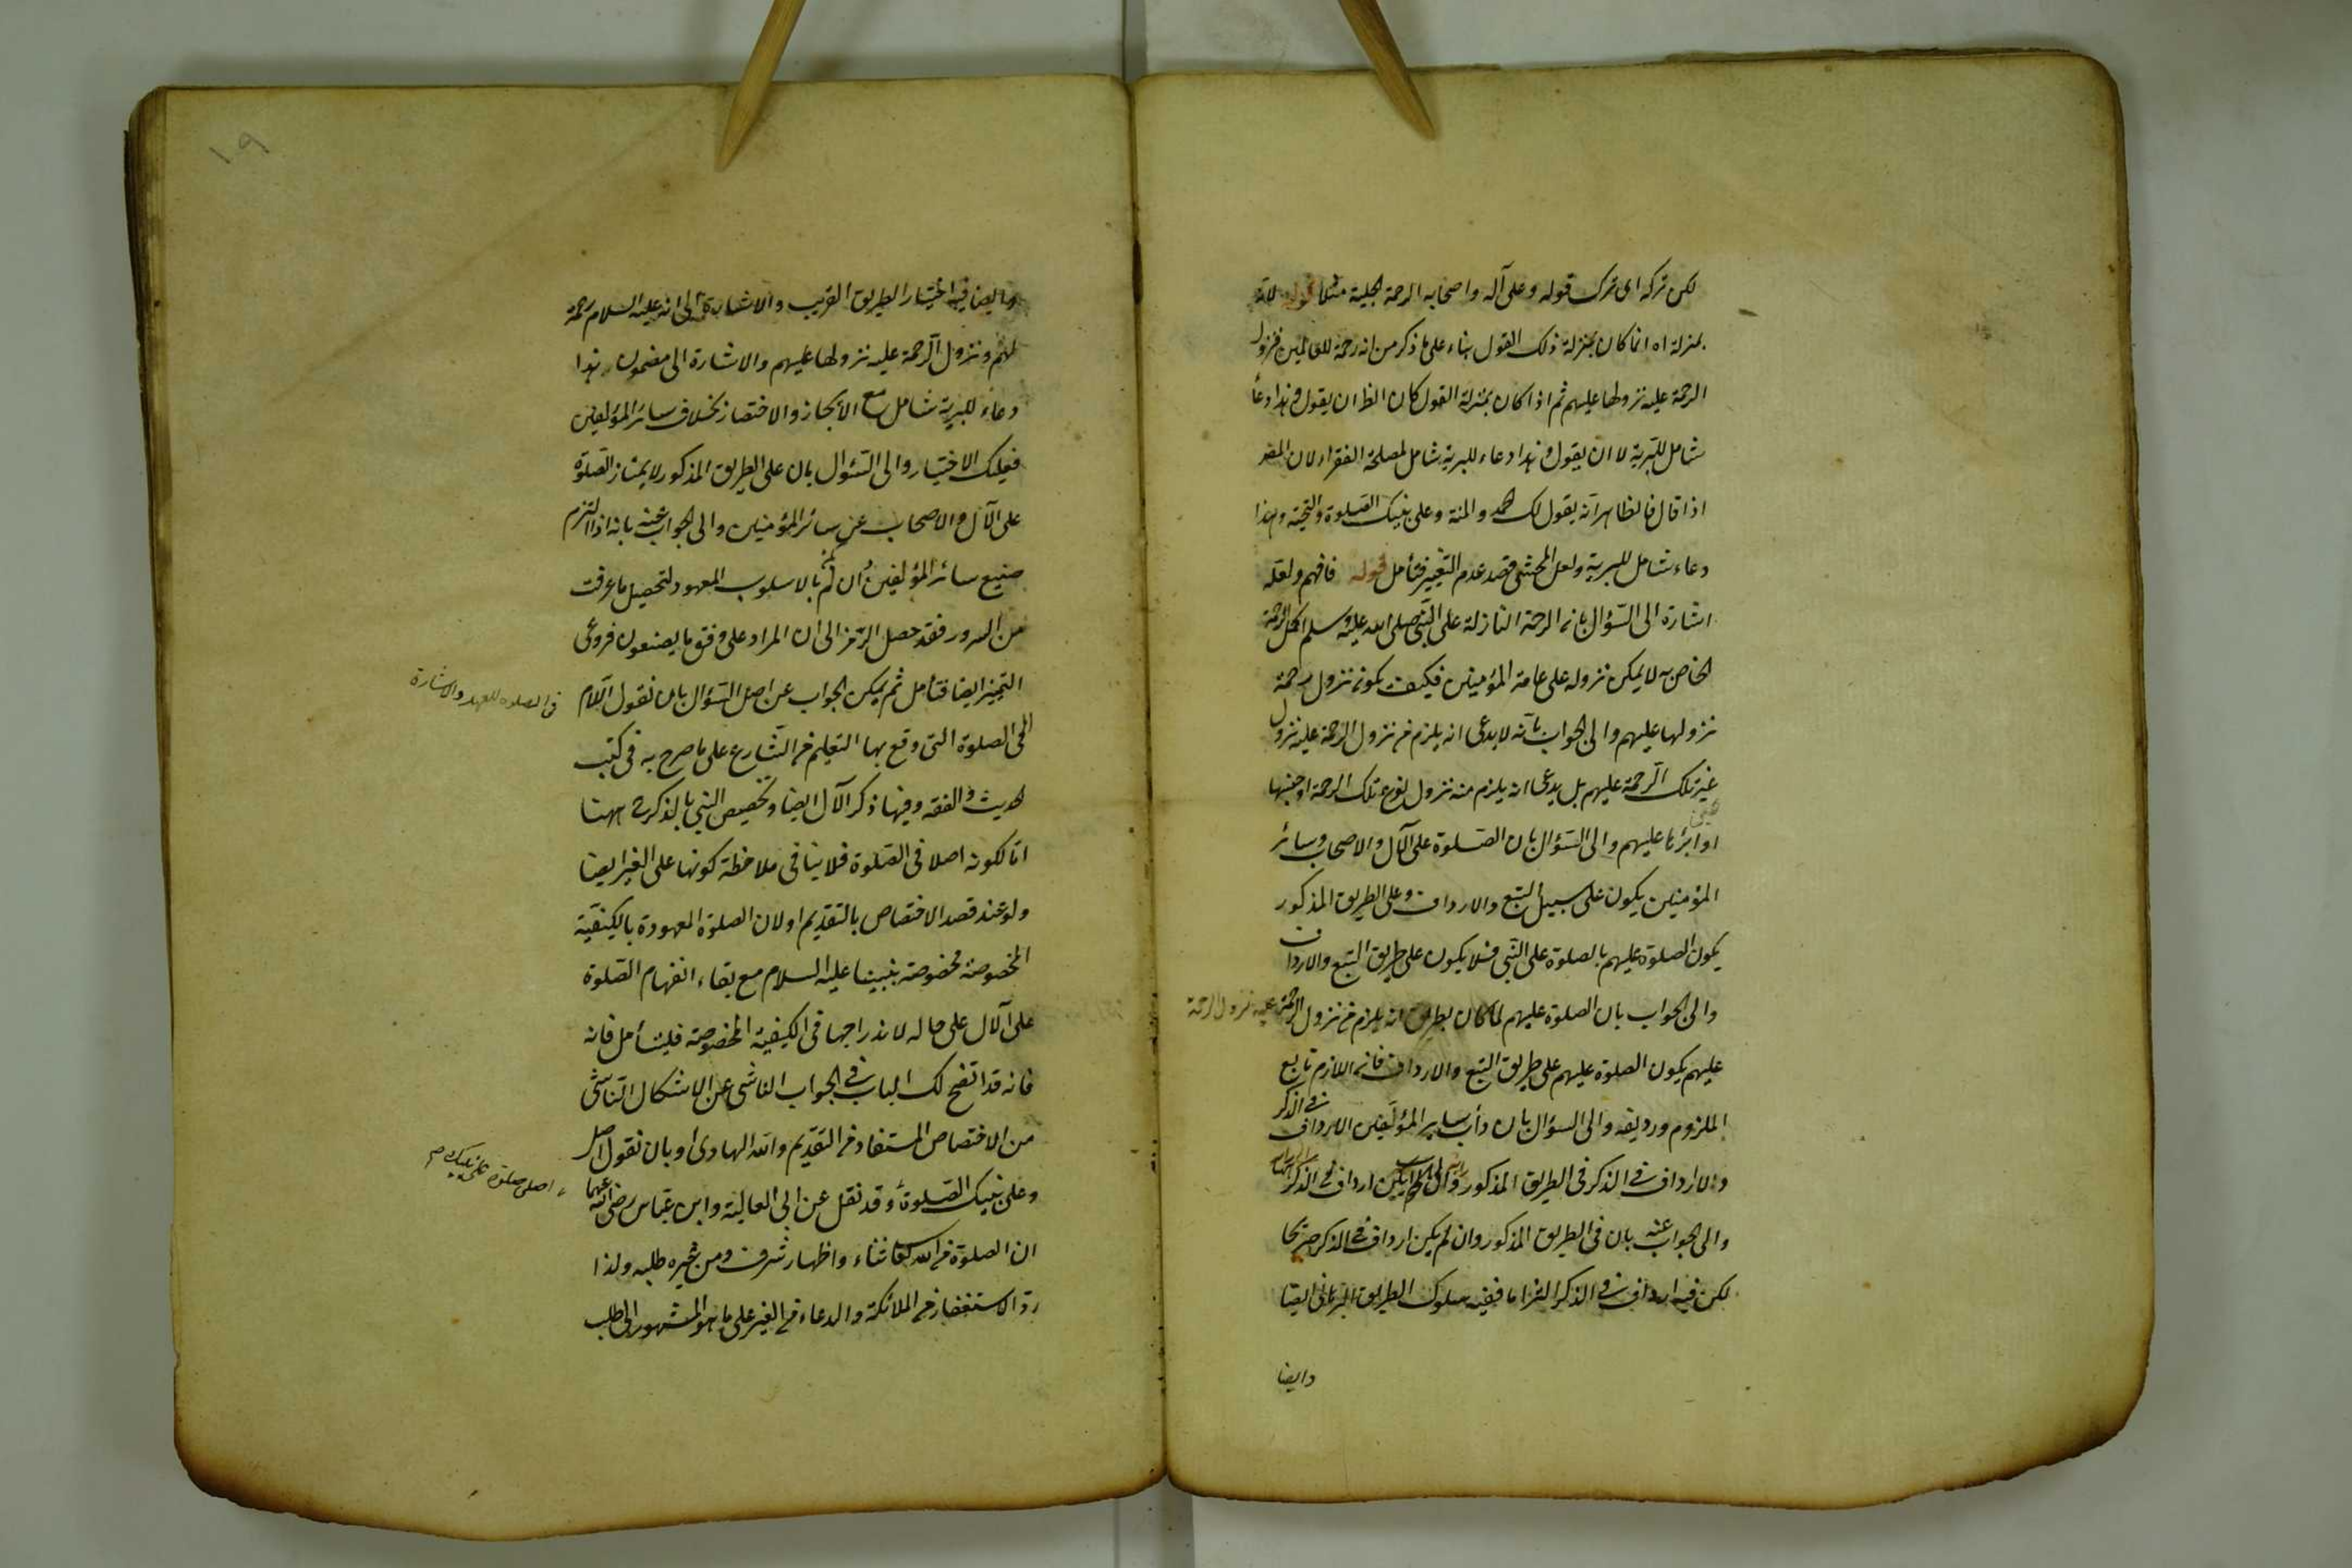 لكن تركه اى ترك قوله وعلى آله واصحابه الرحمة الجلية مثلا قوله لانه
بمنزلة اه انما كان بمنزلة ذلك القول بناء على ما ذكر من انه رحمة للعالمين فنزول
الرحمة عليه نزولها عليهم ثم اذا كان بمنزلة القول كان الظ ان يقول وهذا دعاء
شامل للبرية لا ان يقول وهذا دعاء للبرية شامل لمصلحة الفقراء لان المض
اذا قال فالظاهر انه يقول لك الحمد والمنة وعلى نبيك الصلوة والتحية وهذا
دعاء شامل للبرية ولعل المحشى قصد عدم التغيير فتأمل قوله فافهم ولعله
اشارة الى السؤال بان الرحمة النازلة على النبى صلى الله عليه وسلم اكمل الرحمة
الخاص به لا يمكن نزوله على عامة المؤمنين فكيف يكون نزول رحمة
نزولها عليهم والى الجواب بانه لا يدعى انه يلزم من نزول الرحمة عليه نزول
عين تلك الرحمة عليهم بل يدعى انه يلزم منه نزول نوع تلك الرحمة او جنسها
او اثرها عليهم والى السؤال بان الصلوة على الآل والاصحاب وسائر
المؤمنين يكون على سبيل التبع والارداف وعلى الطريق المذكور
يكون الصلوة عليهم بالصلوة على النبى فلا يكون على طريق التبع والارداف
والى الجواب بان الصلوة عليهم لما كان بطريق انه يلزم من نزول الرحمة عليه نزول الرحمة
عليهم يكون الصلوة عليهم على طريق التبع والارداف فان اللازم تابع
الملزوم ورديفه والى السؤال بان دأب ساير المؤلفين الارداف فى الذكر
والارداف فى الذكر فى الطريق المذكور
والى الجواب عنه بان فى الطريق المذكور وان لم يكن ارداف فى الذكر صريحا
لكن فيه ارداف فى الذكر التزاما ففيه سلوك الطريق البرهانى ايضا
وايضا
١٩
وايضا فيه اختيار الطريق القريب والاشارة الى انه عليه السلام رحمة
لهم ونزول الرحمة عليه نزولها عليهم والاشارة الى مضمون هذا
دعاء للبرية شامل مع الايجاز والاختصار بخلاف سائر المؤلفين
فعليك الاختيار والى السؤال بان على الطريق المذكور لا يمتاز الصلوة
على الآل والاصحاب عن سائر المؤمنين والى الجواب عنه بانه اذا التزم
صنيع سائر المؤلفين وان لم بالاسلوب المعهود لتحصيل ما عرفت
من السرور فقد حصل الرمز الى ان المراد على وفق ما يصنعون فروعى
التميز ايضا فتأمل ثم يمكن الجواب عن اصل السؤال بان نقول اللام
فى الصلوة للعهد والاشارة
الى الصلوة التى وقع بها التعليم من الشارع على ما صرح به فى كتب
الحديث والفقه وفيها ذكر الآل ايضا وتخصيص النبى بالذكر ههنا
اما لكونه اصلا فى الصلوة فلا ينافى ملاحظة كونها على الغير ايضا
ولو عند قصد الاختصاص بالتقديم او لان الصلوة المعهودة بالكيفية
المخصوصة مخصوصة بنبينا عليه السلام مع بقاء انفهام الصلوة
على الآل على حاله لاندراجها فى الكيفية المخصوصة فليتأمل فانه
فانه قد اتضح لك الباب فى الجواب الناشى عن الاشكال الناشئ
من الاختصاص المستفاد من التقديم والله الهادى او بان نقول اصل
وعلى نبيك الصلوة اصلى صلوة على نبيك
وقد نقل عن ابى العالية وابن عباس رضى الله عنهما
ان الصلوة من الله تعالى ثناء واظهار شرف ومن غيره طلبه ولذا
رد الاستغفار من الملائكة والدعاء من الغير على ما هو المشهور الى طلب